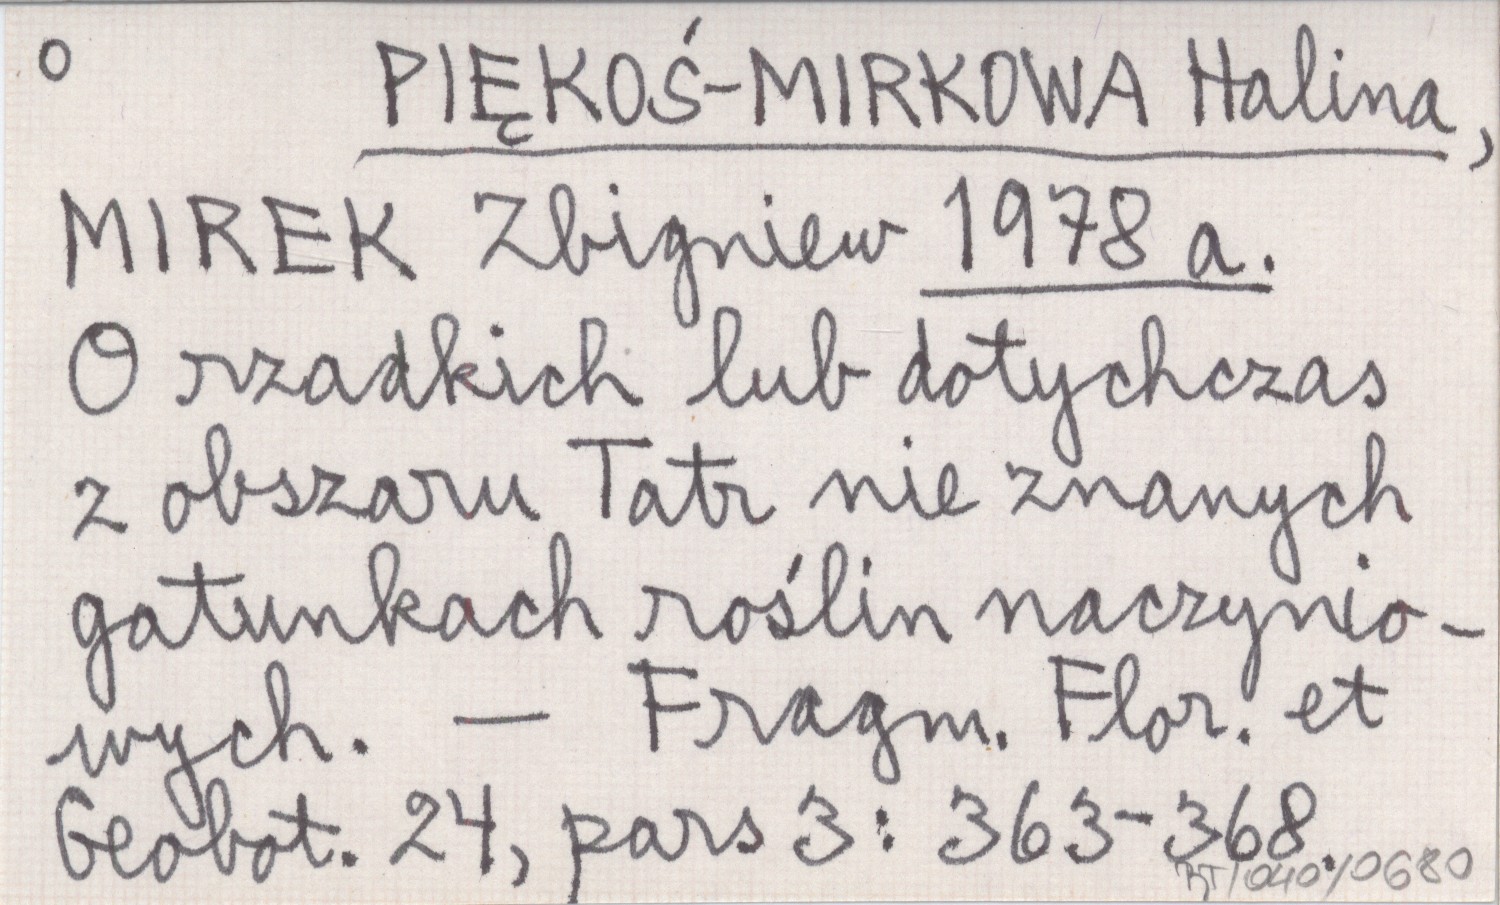 o PIĘKOŚ-MIRKOWA Halina,
MIREK Zbigniew 1978 a.
O rzadkich lub dotychczas
z obszaru Tatr nie znanych
gatunkach roślin naczynio-
wych. — Fragm. Flor. et
Geobot. 24, pars 3: 363-368.
BT/040/0680